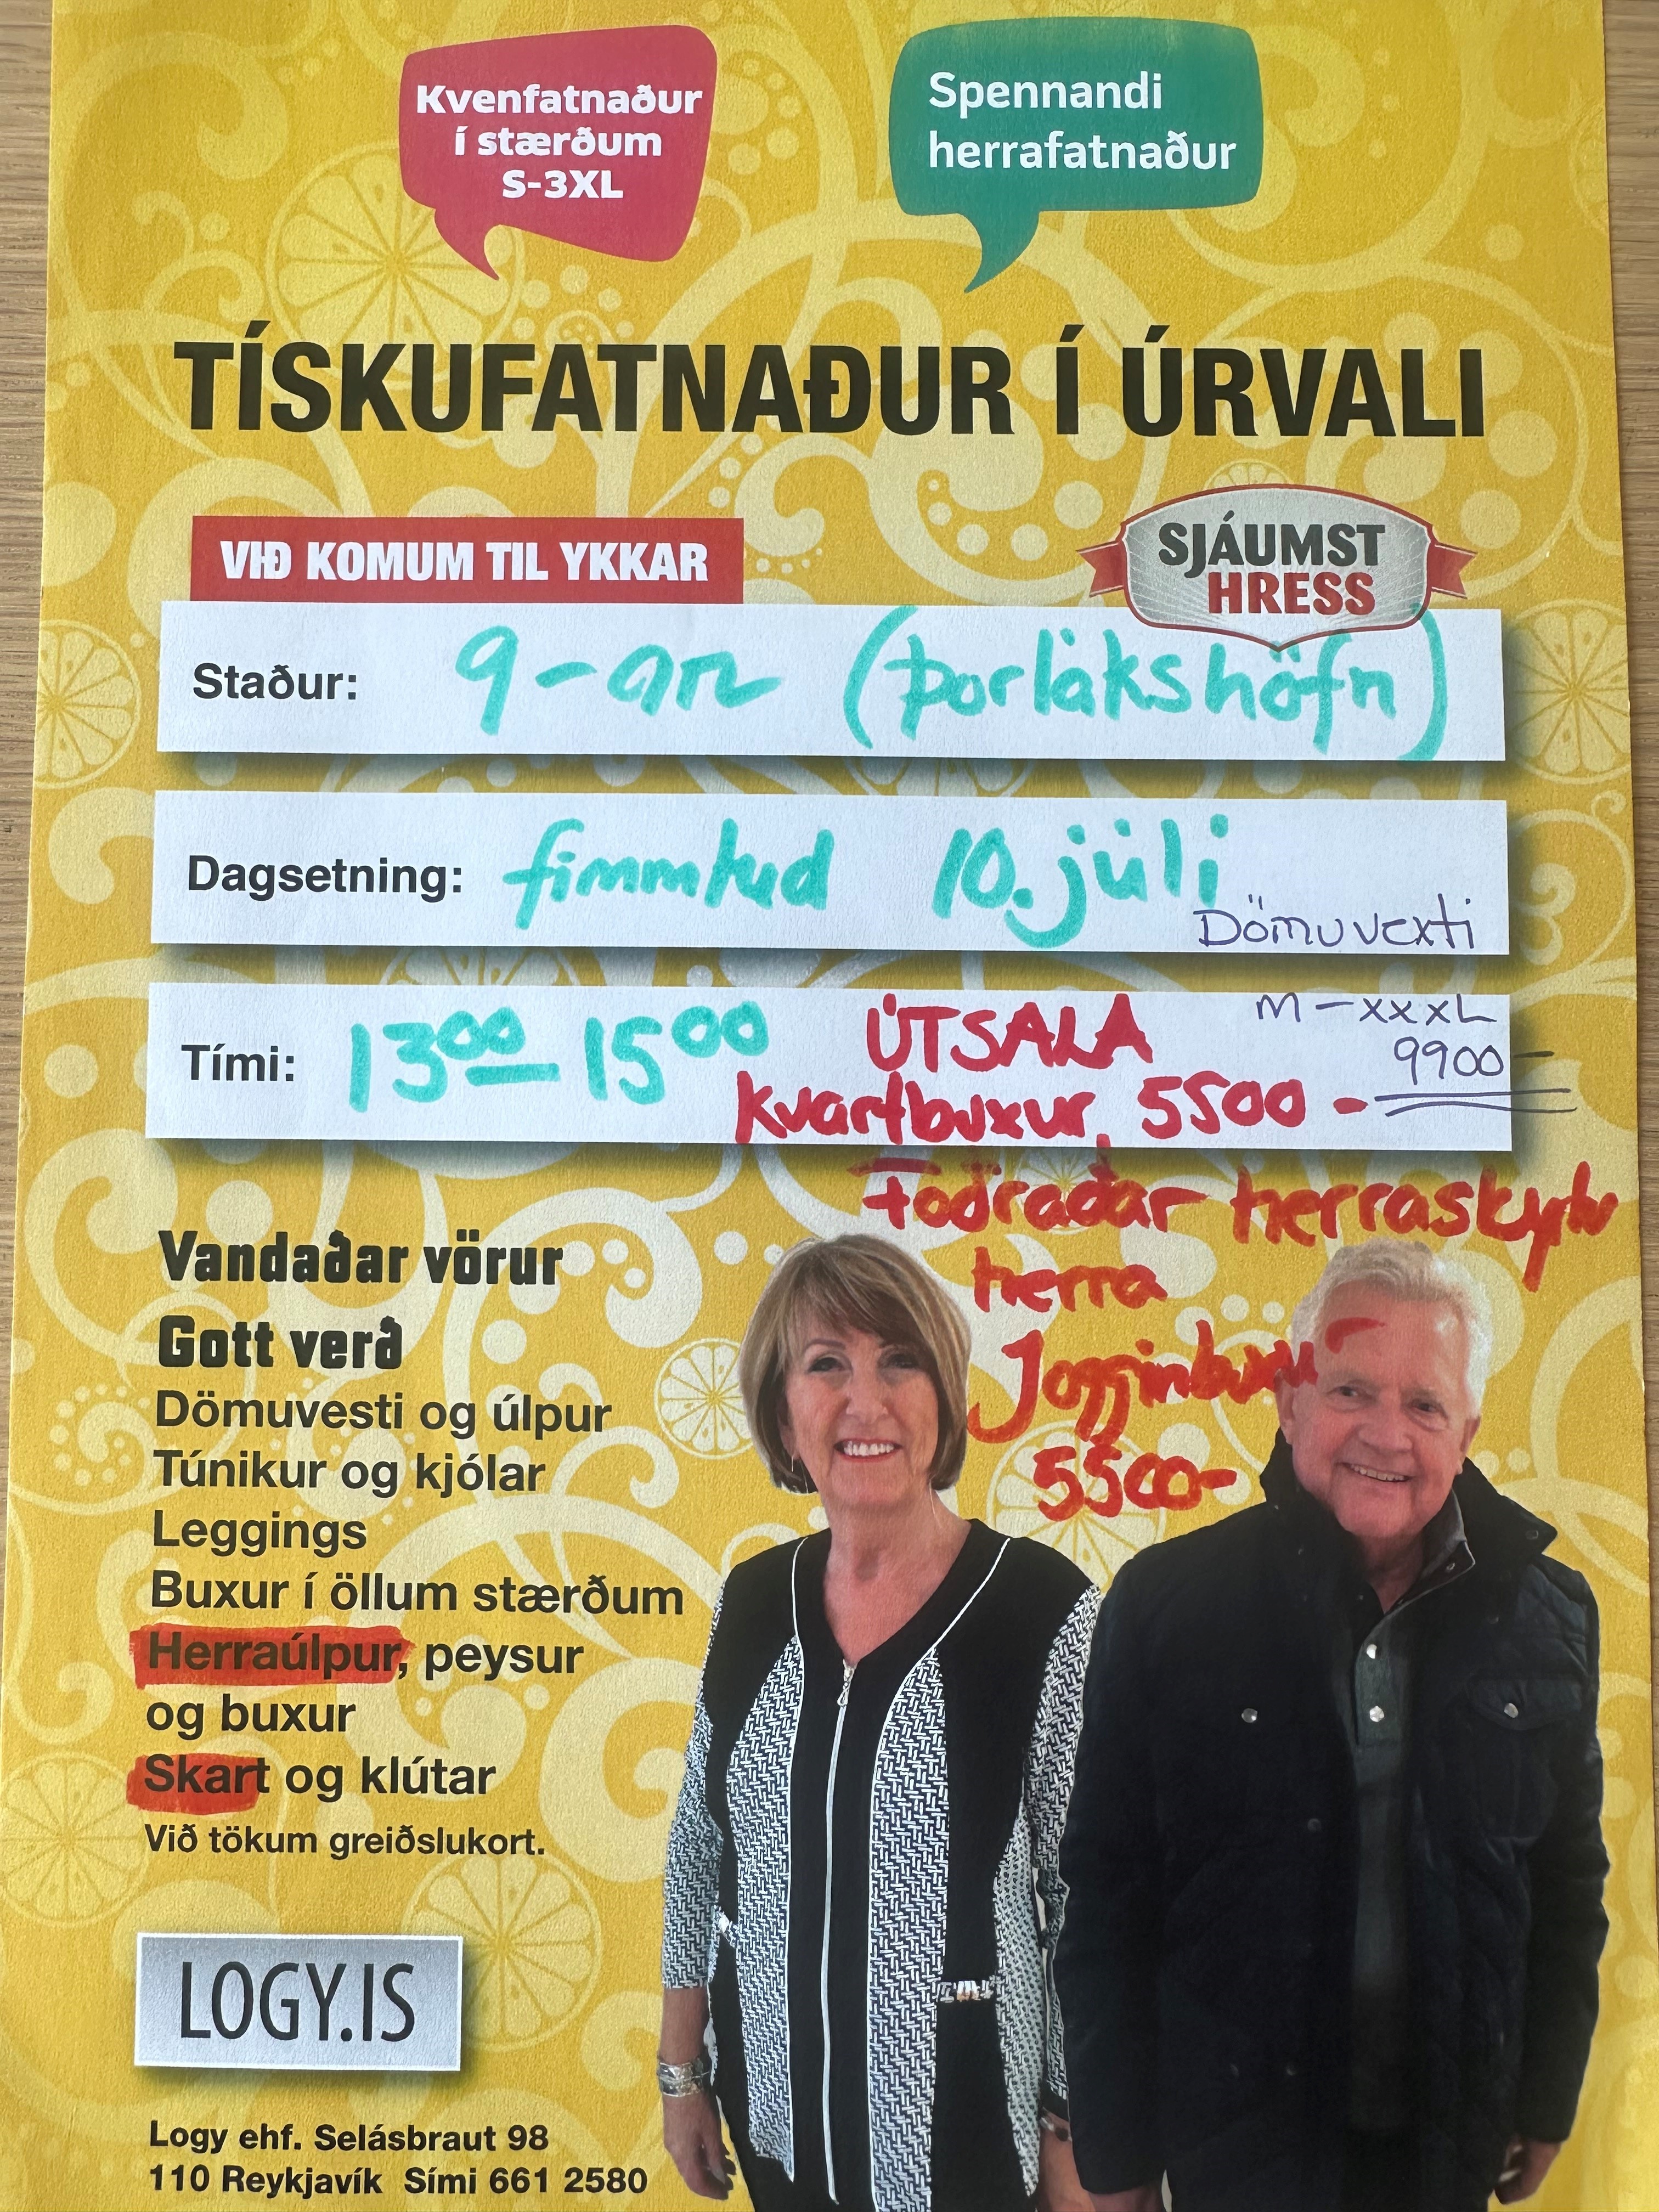 Kvenfatnaður
í stærðum
S-3XL
Spennandi
herrafatnaður
TÍSKUFATNAÐUR Í ÚRVALI
VIÐ KOMUM TIL YKKAR
SJÁUMST
HRESS
Staður: 9-an (Þorlákshöfn)
Dagsetning: fimmtud 10. júlí
Dömuvexti
Tími: 13 00 - 15 00
ÚTSALA
kvartbuxur 5500 -
M - XXXL
9900 -
Foðraðar herraskyrtur
herra
5500 -
Vandaðar vörur
Gott verð
Dömuvesti og úlpur
Túnikur og kjólar
Leggings
Buxur í öllum stærðum
Herraúlpur, peysur
og buxur
Skart og klútar
Við tökum greiðslukort.
LOGY.IS
Logy ehf. Selásbraut 98
110 Reykjavík Sími 661 2580